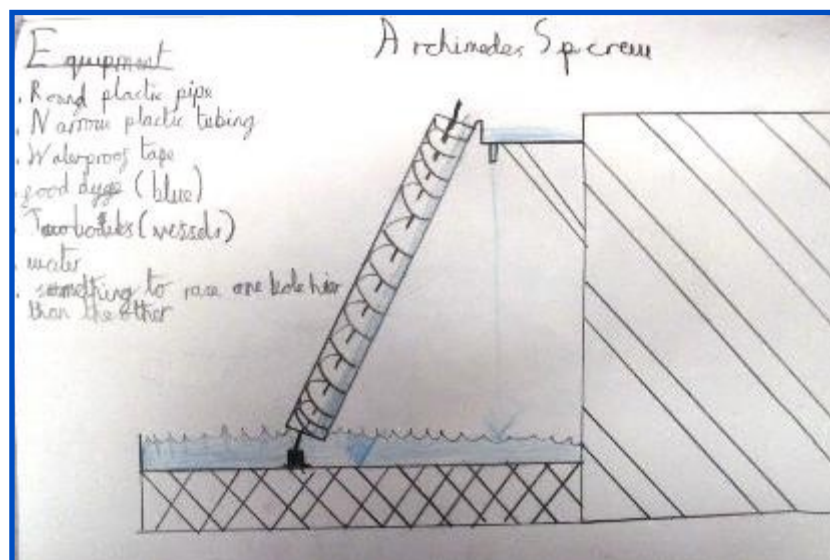 Archimedes Spcrew
Equipment
. Round plactic pipe
. Narrow plactic tubing
. Waterproof tape
. food dyge (blue)
. Two bowls (vessels)
. water
. something to rase one bole hier
than the other